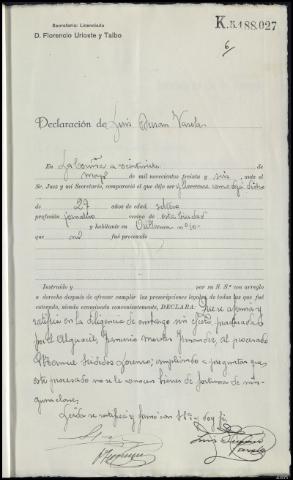 Secretario: Licenciado
D. Florencio Urioste y Taibo
K.5.188.027
6
Declaración de Luis Duran Varela
En La Coruña a veintiseis de
mayo de mil novecientos treinta y seis, ante el
Sr. Juez y mi Secretario, compareció el que dijo ser y llamarse como deja dicho
de 27 años de edad soltero
profesión jornalero vecino de esta ciudad
y habitante en nº 10-
que no fué procesado
Instruido y por su S. Sª con arreglo
a derecho después de ofrecer cumplir las prescripciones legales de todas las que fué
enterado, siendo examinado convenientemente, DECLARA: Que se afirma y
ratifica en la diligencia de embargo sin efecto, practicada
por el Alguacil, Fernandez, al procesado
Manuel Lorenzo; ampliando a preguntas que
este procesado no se le conocen bienes de fortuna de nin-
guna clase.
Leida se ratifica y firma con Sª Sª doy fé.
Luis Duran
Varela